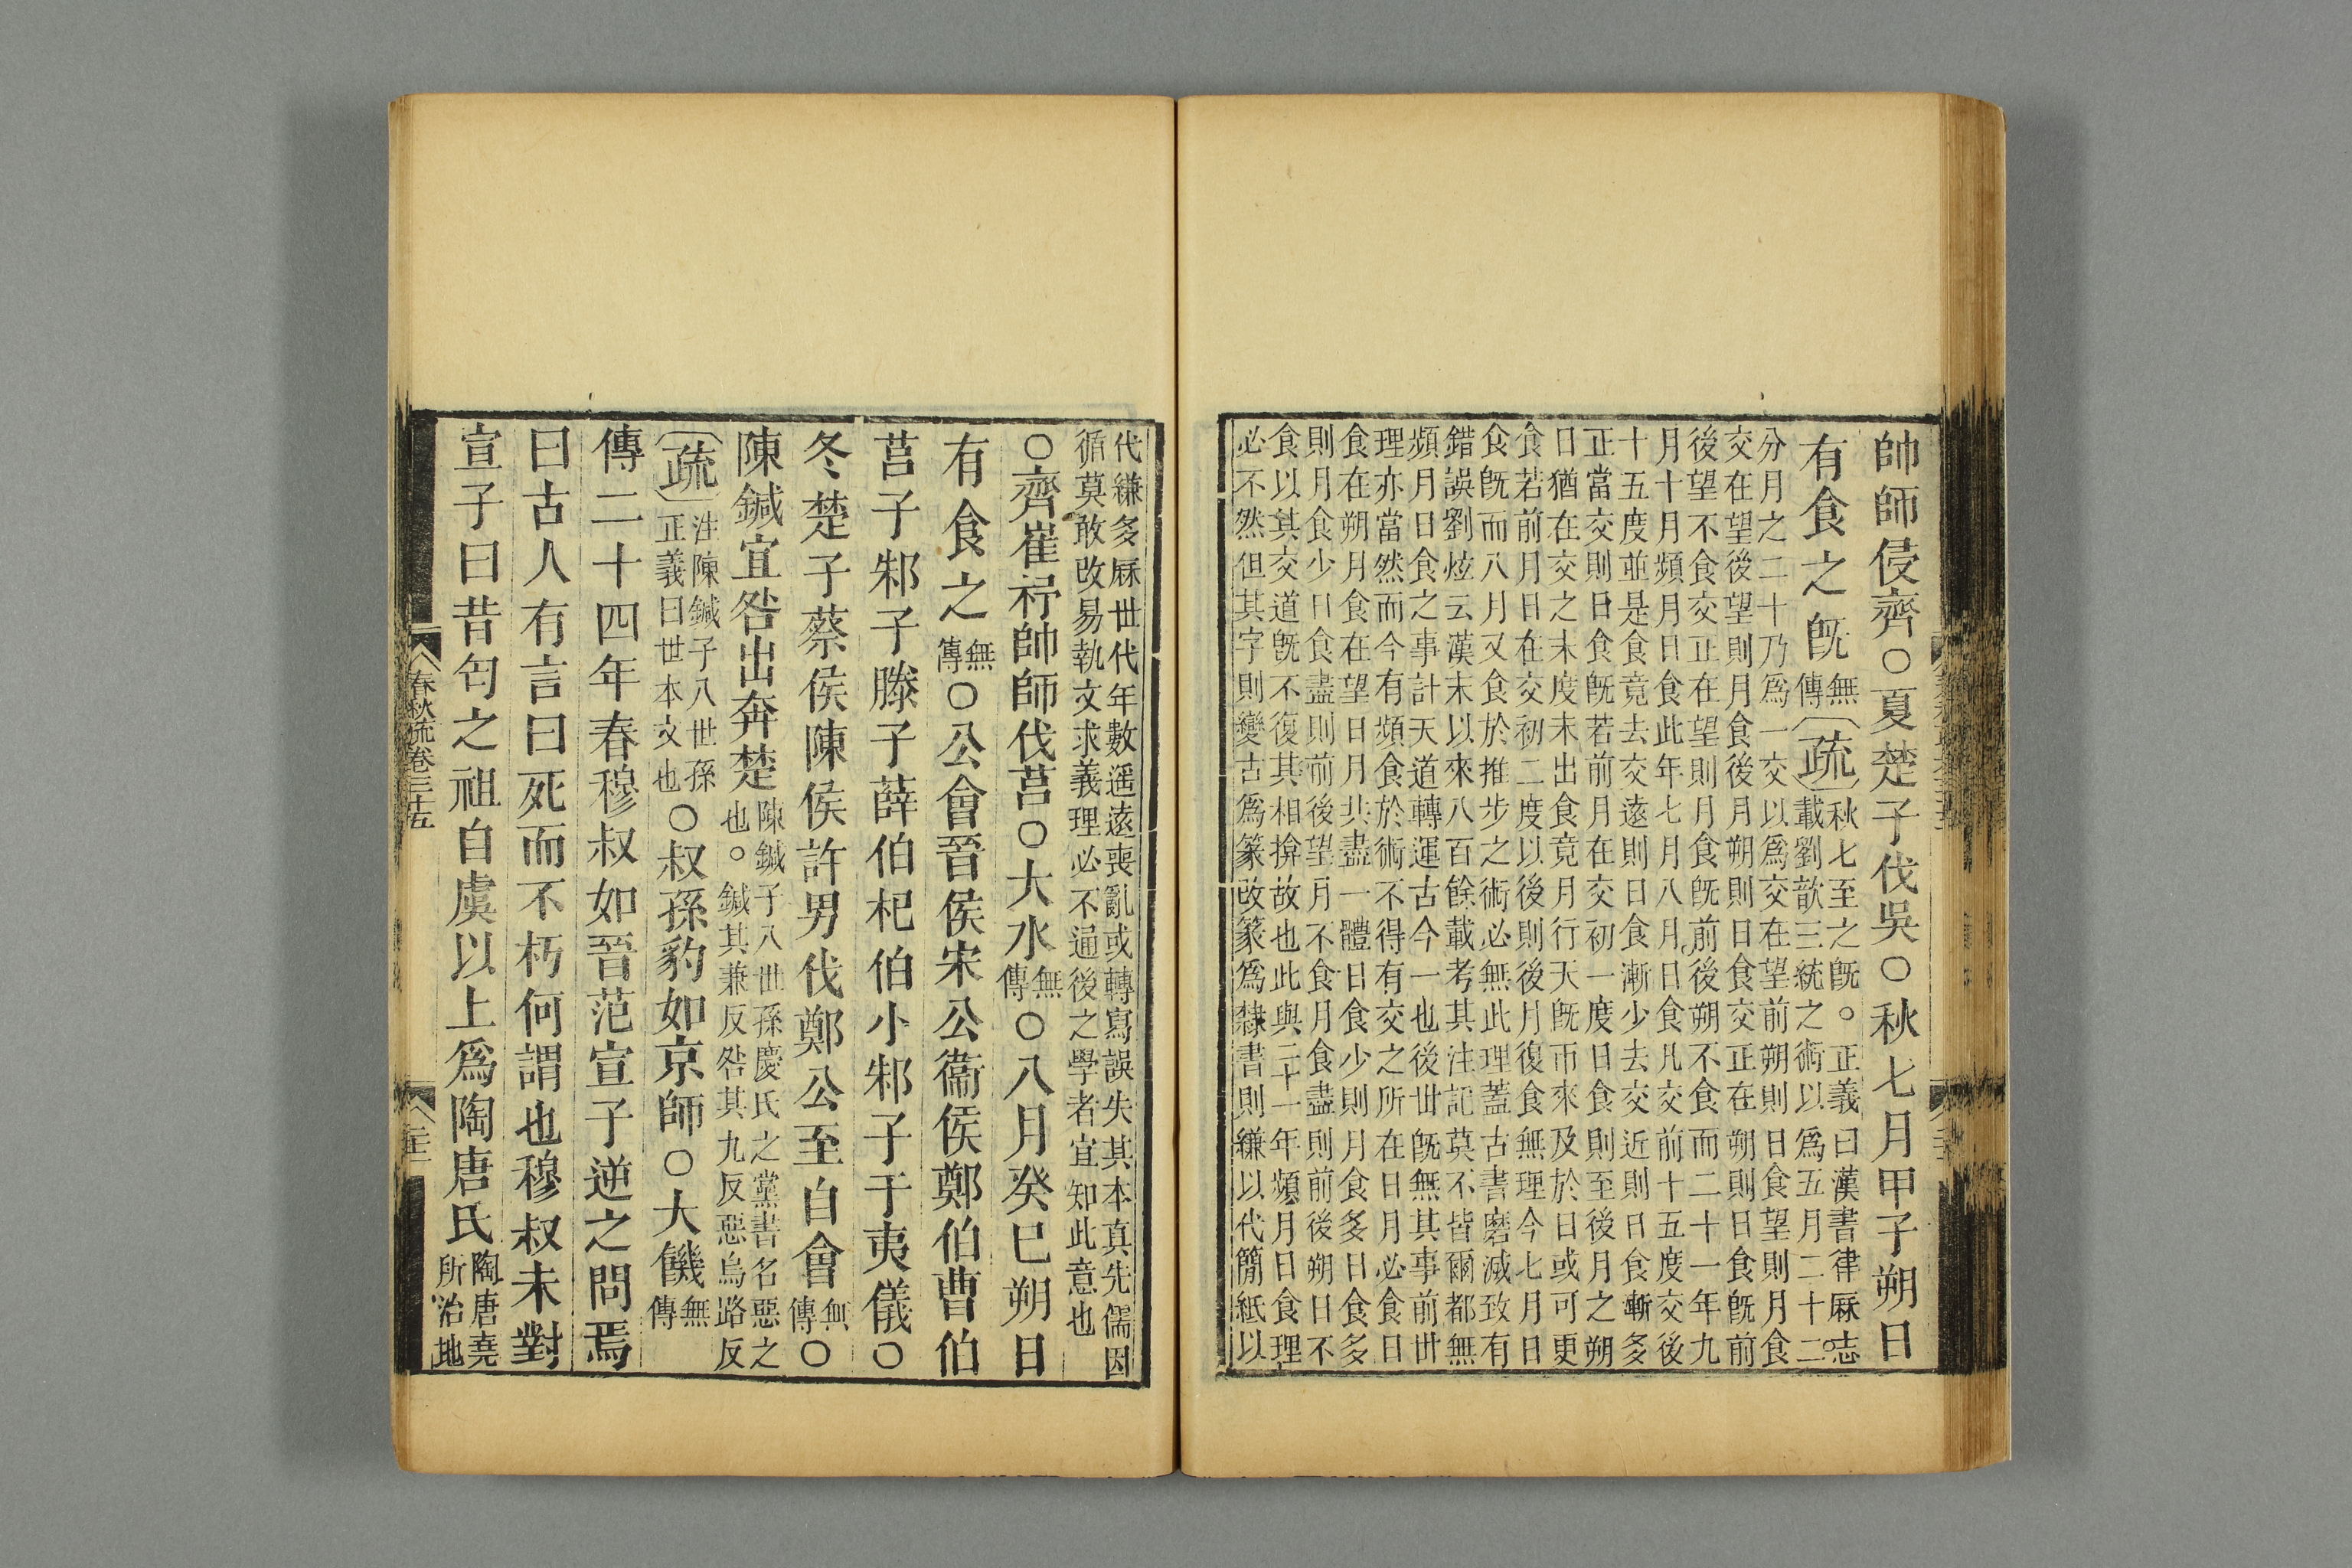 帥師侵齊○夏楚子伐吳○秋七月甲子朔日
有食之旣無傳〔疏〕秋七至之旣。正義曰漢書律厤志
載劉歆三統之術以爲五月二十二
分月之二十乃爲一交以爲交在望前朔則日食望則月食
交在望後望則月食後月朔則日食交正在朔則日食旣前
後望不食交正在望則月食旣前後朔不食而二十一年九
月十月頻月日食此年七月八月日食凡交前十五度交後
十五度並是食竟去交遠則日食漸少去交近則日食漸多
正當交則日食旣若前月在交初一度日食則至後月之朔
日猶在交之末度未出食竟月行天旣帀來及於日或可更
食若前月日在交初二度以後則後月復食無理今七月日
食旣而八月又食於推步之術必無此理蓋古書磨滅致有
錯誤劉炫云漢末以來八百餘載考其注記莫不皆爾都無
頻月日食之事計天道轉運古今一也後世旣無其事前世
理亦當然而今有頻食於術不得有交之所在日月必食日
食在朔月食在望日月共盡一體日食少則月食多日食多
則月食少日食盡則前後望月不食月食盡則前後朔日不
食以其交道旣不復其相揜故也此與二十一年頻月日食理
必不然但其字則變古爲篆改篆爲隸書則縑以代簡紙以
代縑多厤世代年數遥遠喪亂或轉寫誤失其本真先儒因
循莫敢改易執文求義理必不通後之學者宜知此意也
○齊崔杼帥師伐莒○大水無傳○八月癸巳朔日
有食之無傳○公會晉侯宋公衞侯鄭伯曹伯
莒子邾子滕子薛伯杞伯小邾子于夷儀○
冬楚子蔡侯陳侯許男伐鄭公至自會無傳○
陳鍼宜咎出奔楚陳鍼子八世孫慶氏之黨書名惡之
也。鍼其兼反咎其九反惡烏路反
〔疏〕注陳鍼子八世孫
正義曰世本文也○叔孫豹如京師○大饑無傳
傳二十四年春穆叔如晉范宣子逆之問焉
曰古人有言曰死而不朽何謂也穆叔未對
宣子曰昔匄之祖自虞以上爲陶唐氏陶唐堯
所治地
春秋疏卷三十五